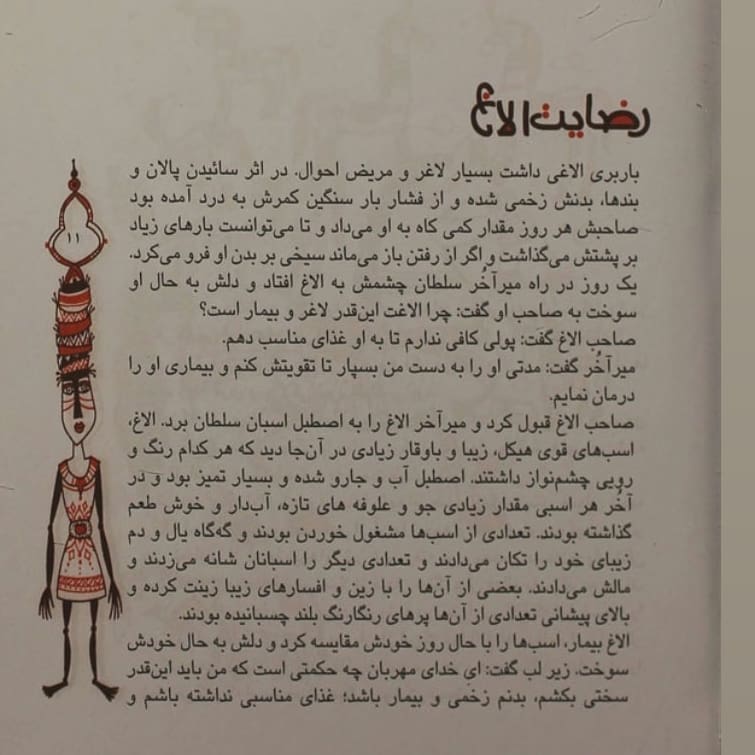 رضایت الاغ
باربری الاغی داشت بسیار لاغر و مریض احوال. در اثر سائیدن پالان و
بندها، بدنش زخمی شده و از فشار بار سنگین کمرش به درد آمده بود
صاحبش هر روز مقدار کمی کاه به او می‌داد و تا می‌توانست بارهای زیاد
بر پشتش می‌گذاشت و اگر از رفتن باز می‌ماند سیخی بر بدن او فرو می‌کرد.
یک روز در راه میرآخُر سلطان چشمش به الاغ افتاد و دلش به حال او
سوخت به صاحب او گفت: چرا الاغت این‌قدر لاغر و بیمار است؟
صاحب الاغ گفت: پولی کافی ندارم تا به او غذای مناسب دهم.
میرآخُر گفت: مدتی او را به دست من بسپار تا تقویتش کنم و بیماری او را
درمان نمایم.
صاحب الاغ قبول کرد و میرآخر الاغ را به اصطبل اسبان سلطان برد. الاغ،
اسب‌های قوی هیکل، زیبا و باوقار زیادی در آن‌جا دید که هر کدام رنگ و
رویی چشم‌نواز داشتند. اصطبل آب و جارو شده و بسیار تمیز بود و در
آخُر هر اسبی مقدار زیادی جو و علوفه های تازه، آب‌دار و خوش طعم
گذاشته بودند. تعدادی از اسب‌ها مشغول خوردن بودند و گه‌گاه یال و دم
زیبای خود را تکان می‌دادند و تعدادی دیگر را اسبانان شانه می‌زدند و
مالش می‌دادند. بعضی از آن‌ها را با زین و افسارهای زیبا زینت کرده و
بالای پیشانی تعدادی از آن‌ها پرهای رنگارنگ بلند چسبانیده بودند.
الاغ بیمار، اسب‌ها را با حال روز خودش مقایسه کرد و دلش به حال خودش
سوخت. زیر لب گفت: ای خدای مهربان چه حکمتی است که من باید این‌قدر
سختی بکشم، بدنم زخمی و بیمار باشد؛ غذای مناسبی نداشته باشم و
۱۱